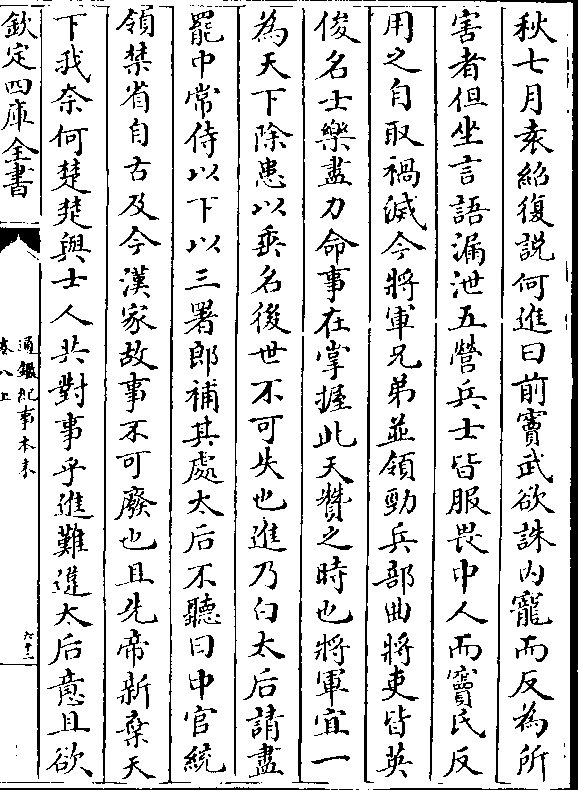 秋七月袁紹復説何進曰前竇武欲誅内寵而反為所
害者但坐言語漏泄五營兵士皆服畏中人而竇氏反
用之自取禍滅今將軍兄弟並領勁兵部曲將吏皆英
俊名士樂盡力命事在掌握此天贊之時也將軍宜一
為天下除患以垂名後世不可失也進乃白太后請盡
罷中常侍以下以三署郎補其處太后不聽曰中官統
領禁省自古及今漢家故事不可廢也且先帝新棄天
下我奈何楚楚與士人共對事乎進難違太后意且欲
欽定四庫全書
通鑑紀事本末
卷八上
六十二